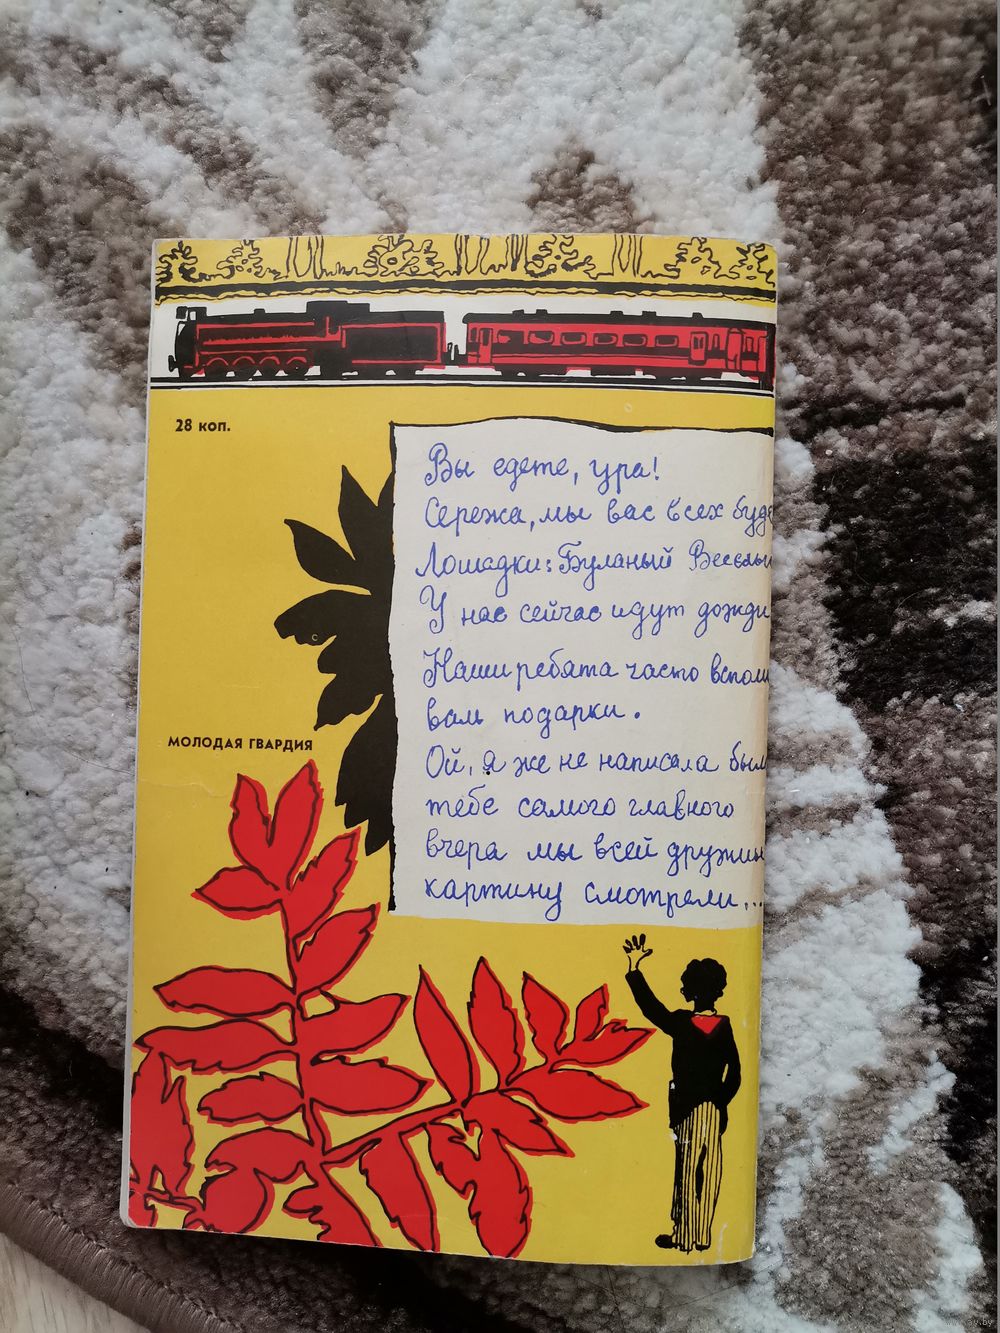 28 коп.
Вы едете, ура!
Сережа, мы вас всех буде
Лошадки: Буланый Веселы
У нас сейчас идут дожди
Наши ребята часто вспом
вам подарки.
МОЛОДАЯ ГВАРДИЯ
Ой, я же не написала был
тебе самого главного
вчера мы всей дружин
картину смотрели...